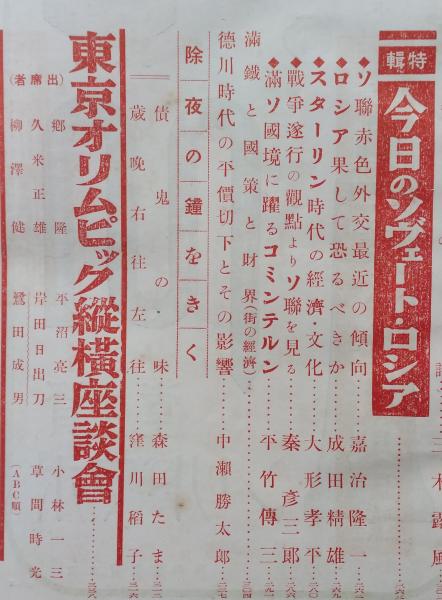 三木露風
特輯 今日のソヴェート・ロシア
◆ソ聯赤色外交最近の傾向……嘉治隆一
◆ロシア果して恐るべきか……成田精雄
◆スターリン時代の經濟・文化……大形孝平
◆戰爭遂行の觀點よりソ聯を見る……秦彦三郎
◆滿ソ國境に躍るコミンテルン……平竹傳三
滿鐵と國策と財界(街の經濟)
德川時代の平價切下とその影響……中瀬勝太郎
除夜の鐘をきく
債鬼の味……森田たま
歳晩右往左往……窪川稻子
東京オリムピック縱橫座談會
(出席者)
郷隆 平沼亮三 小林一三
久米正雄 岸田日出刀 草間時光
柳澤健 鷲田成男 (ABC順)